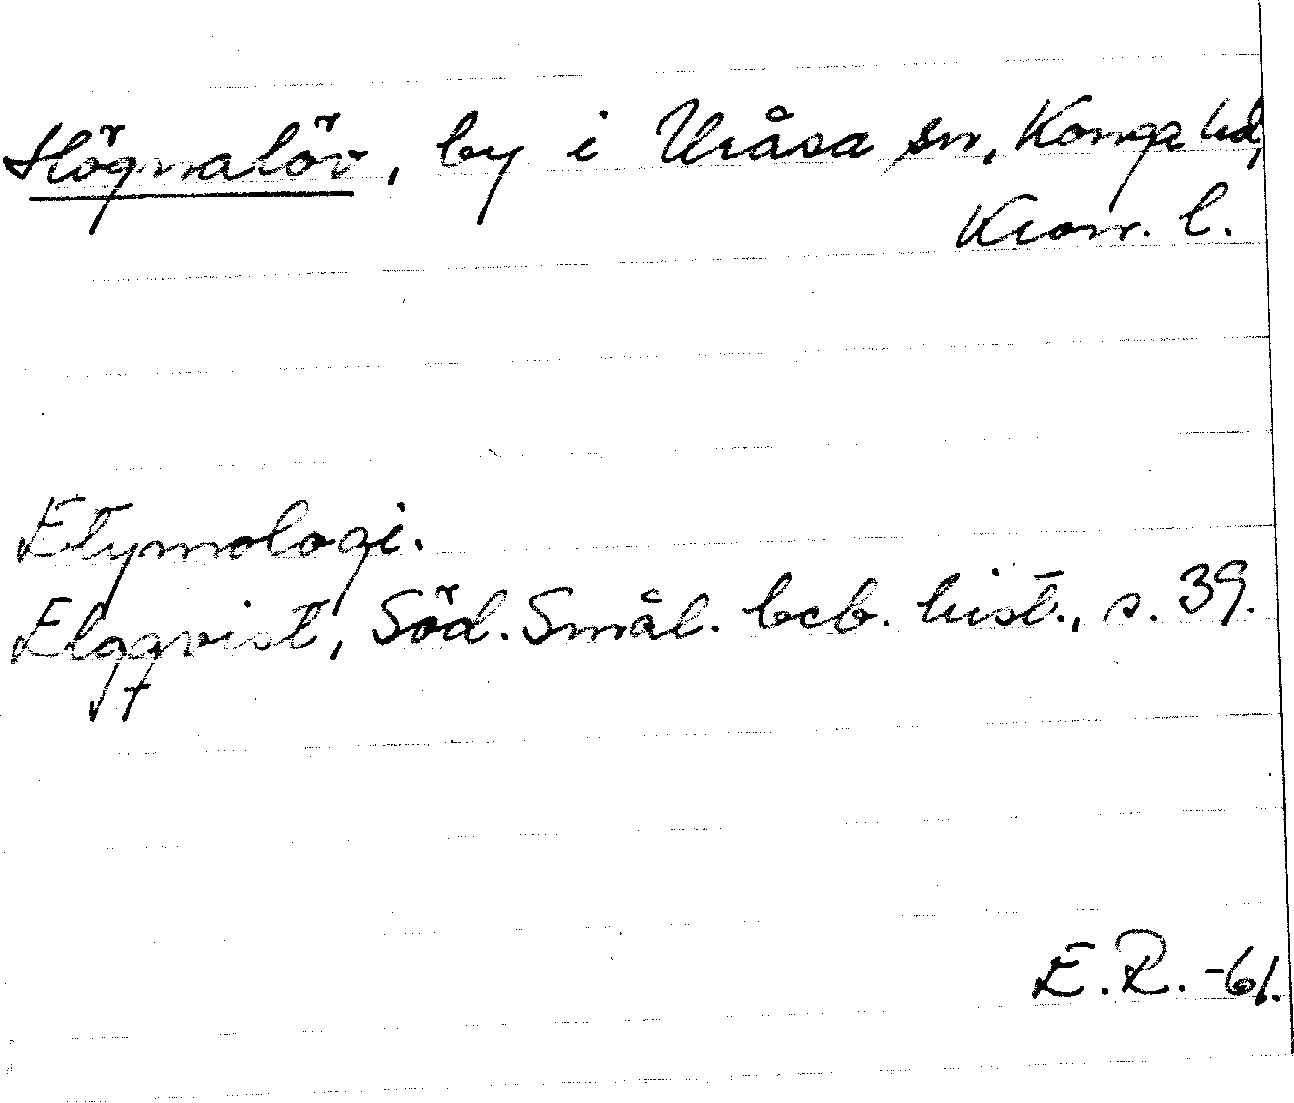 Högnalöv, by i Uråsa sn, Konga hd,
Kron. l.
Etymologi.
Elgqvist, Söd. Smål. beb. hist., s. 39.
E.R. -61.